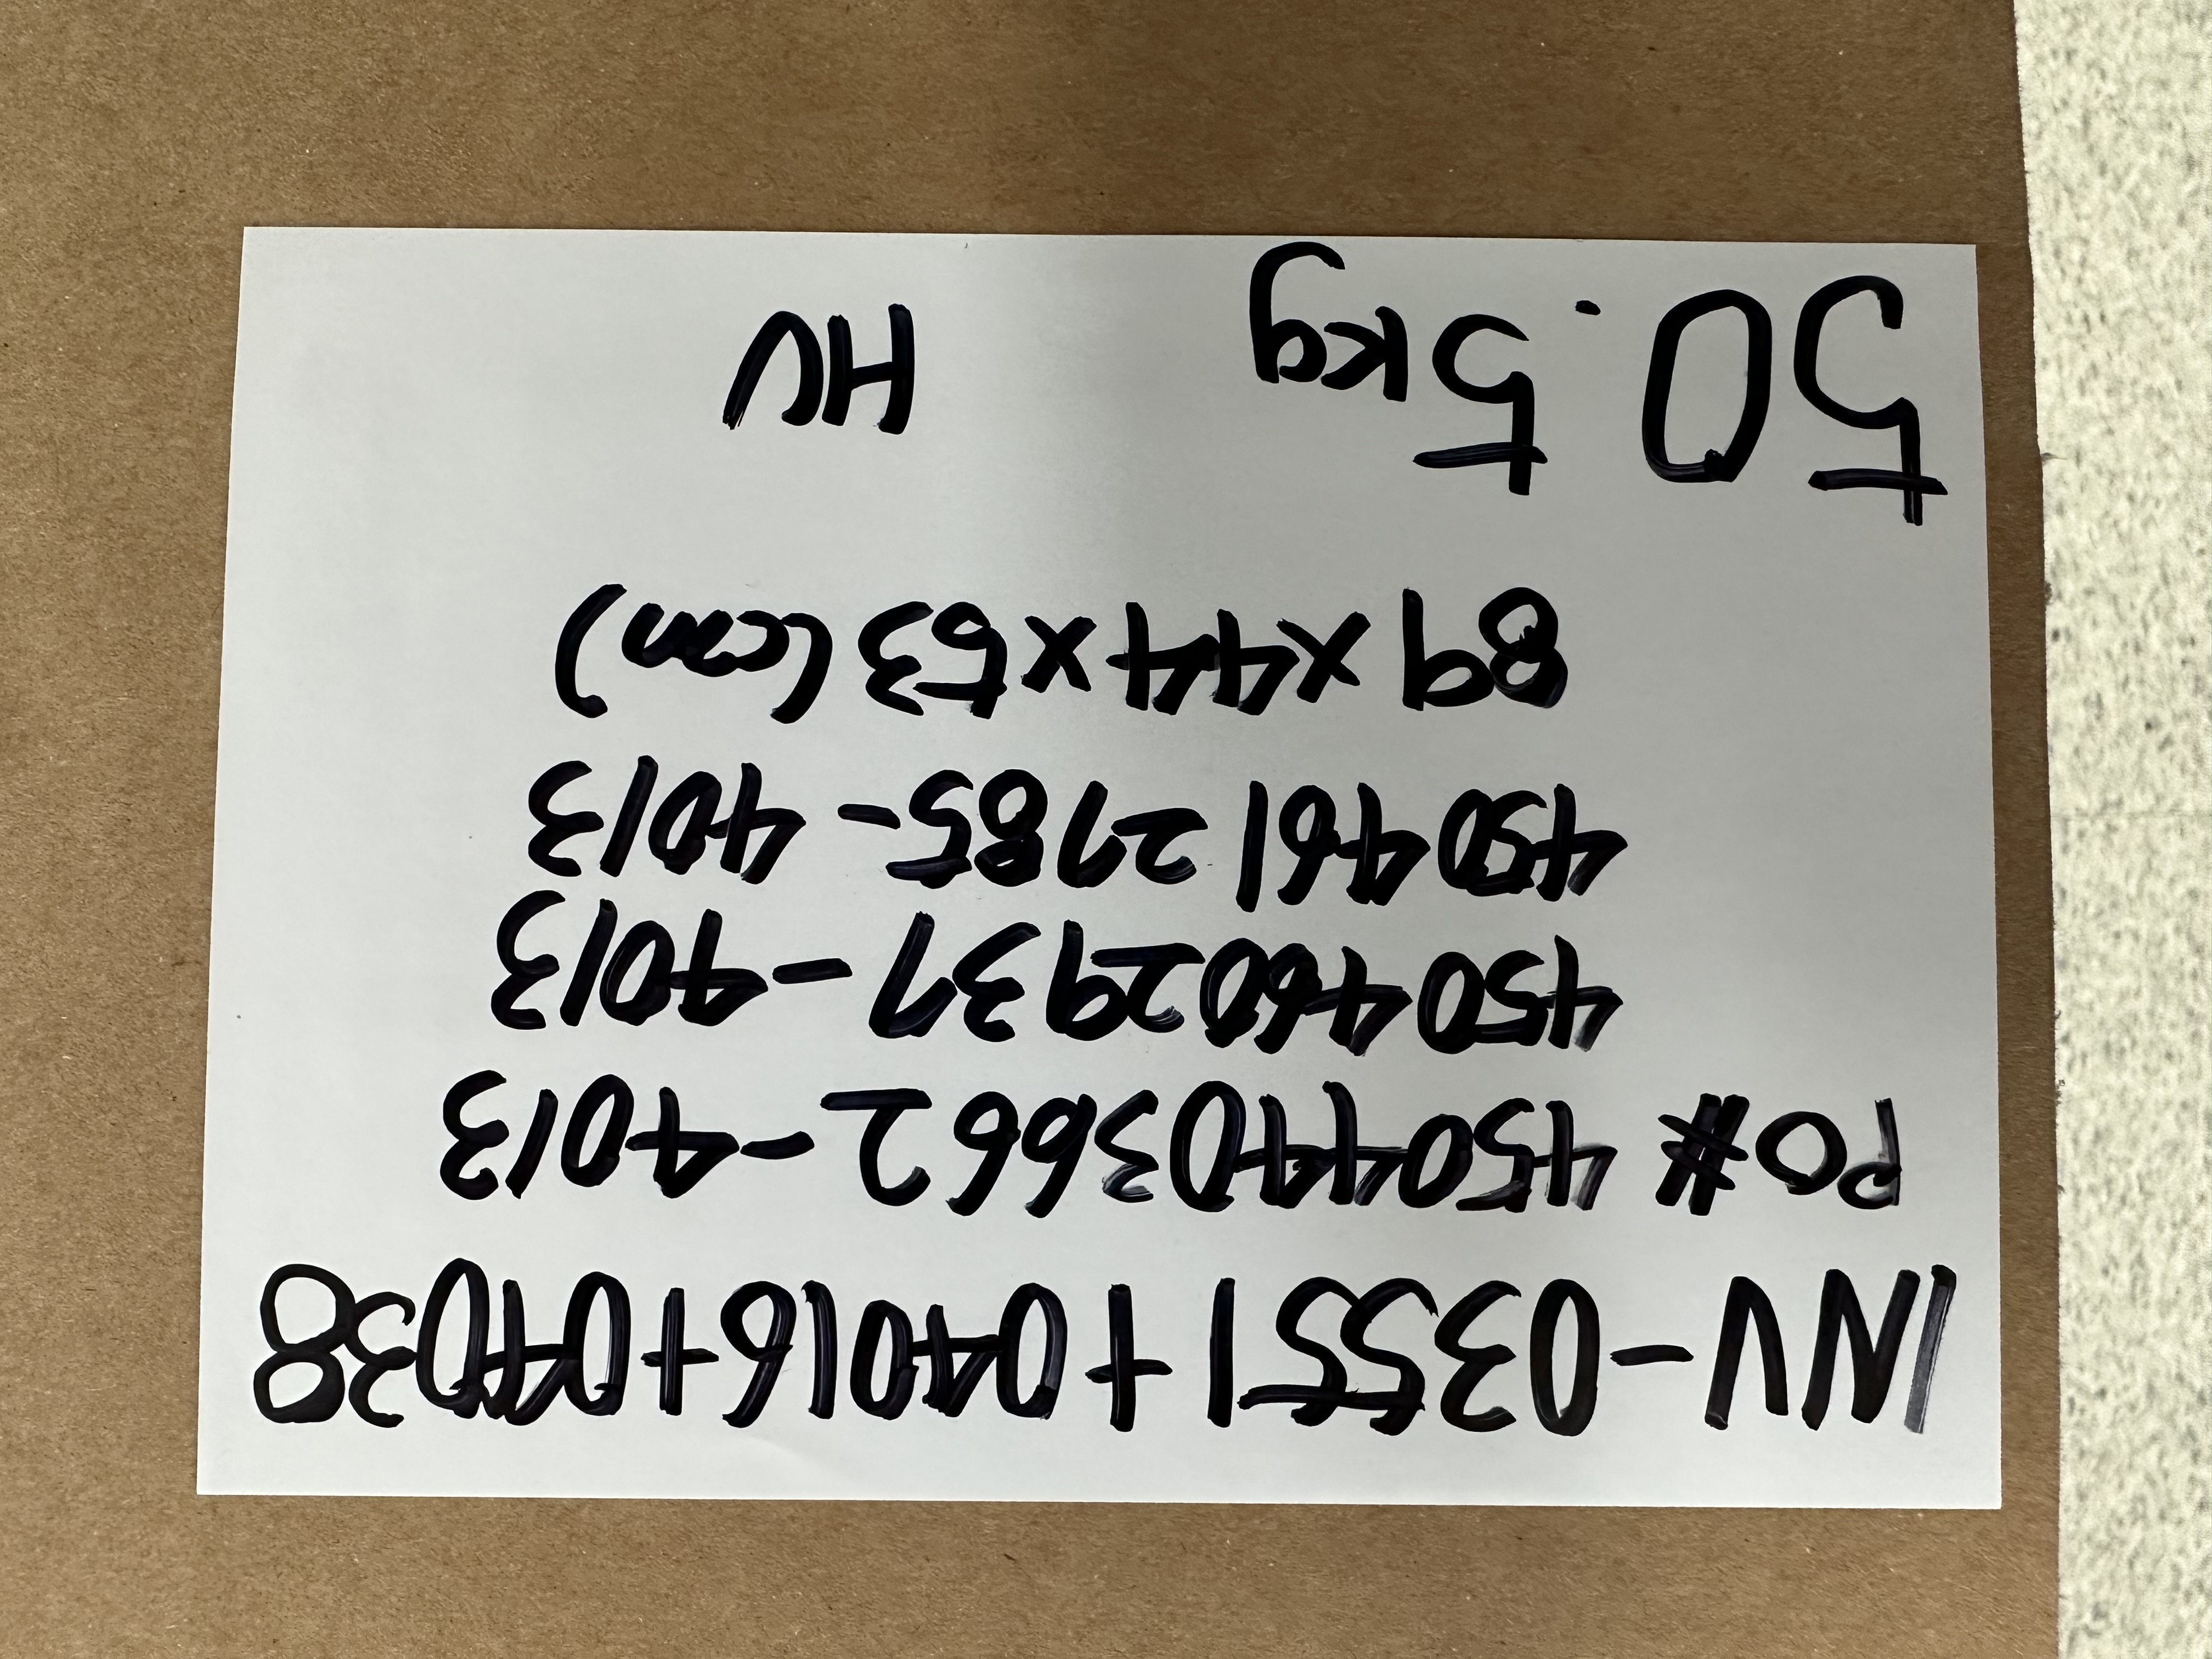 INV-03551+04016+04038
PO# 4504403662-4013
4504602937-4013
4504612785-4013
89x44x53 (cm)
50.5kg HU